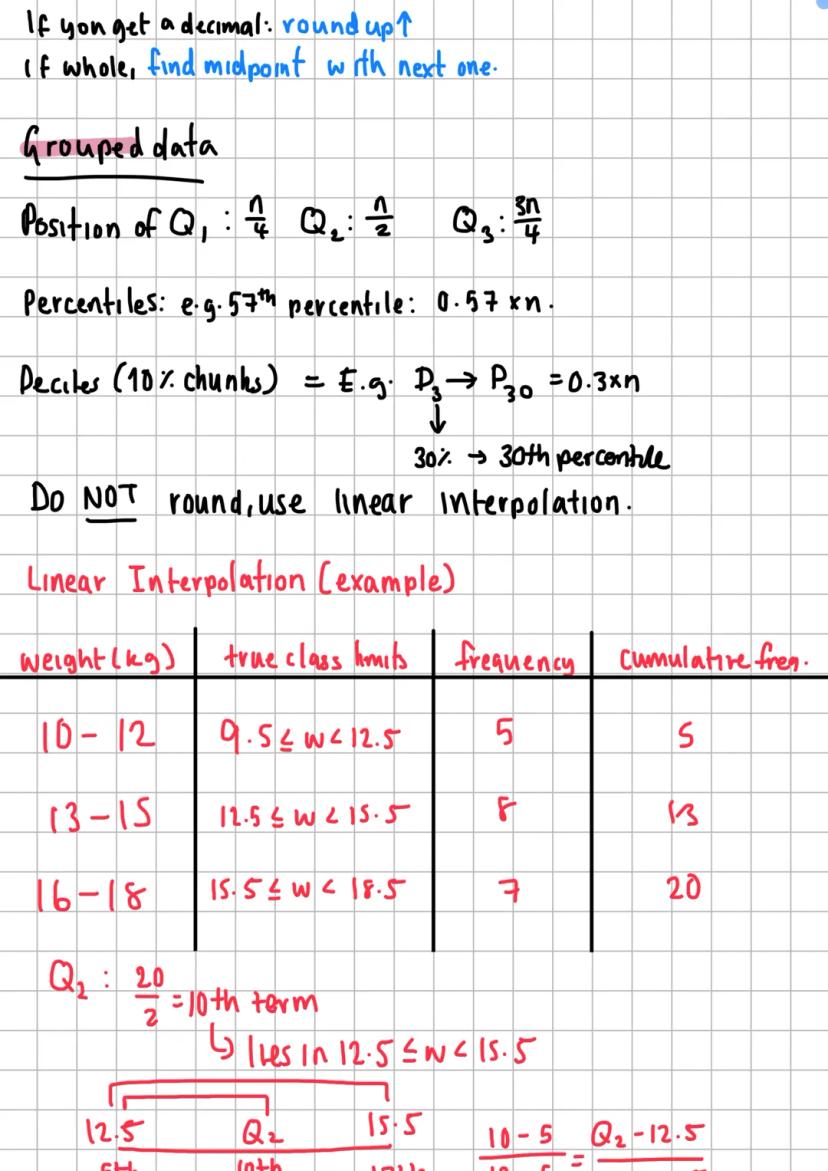 If you get a decimal: round up↑
If whole, find midpoint with next one.
Grouped data
Position of Q₁ : n/4 Q₂ : n/2 Q₃ : 3n/4
Percentiles: e.g. 57th percentile: 0.57 xn.
Deciles (10% chunks) = E.g. D₃ → P₃₀ = 0.3xn
↓
30% → 30th percentile
Do NOT round, use linear interpolation.
Linear Interpolation (example)
weight (kg) true class limits frequency cumulative freq.
10 - 12 9.5 ≤ w < 12.5 5 5
13 - 15 12.5 ≤ w < 15.5 8 13
16 - 18 15.5 ≤ w < 18.5 7 20
Q₂ : 20/2 = 10th term
↳ lies in 12.5 ≤ w < 15.5
12.5 Q₂ 15.5
10 - 5 = Q₂ - 12.5